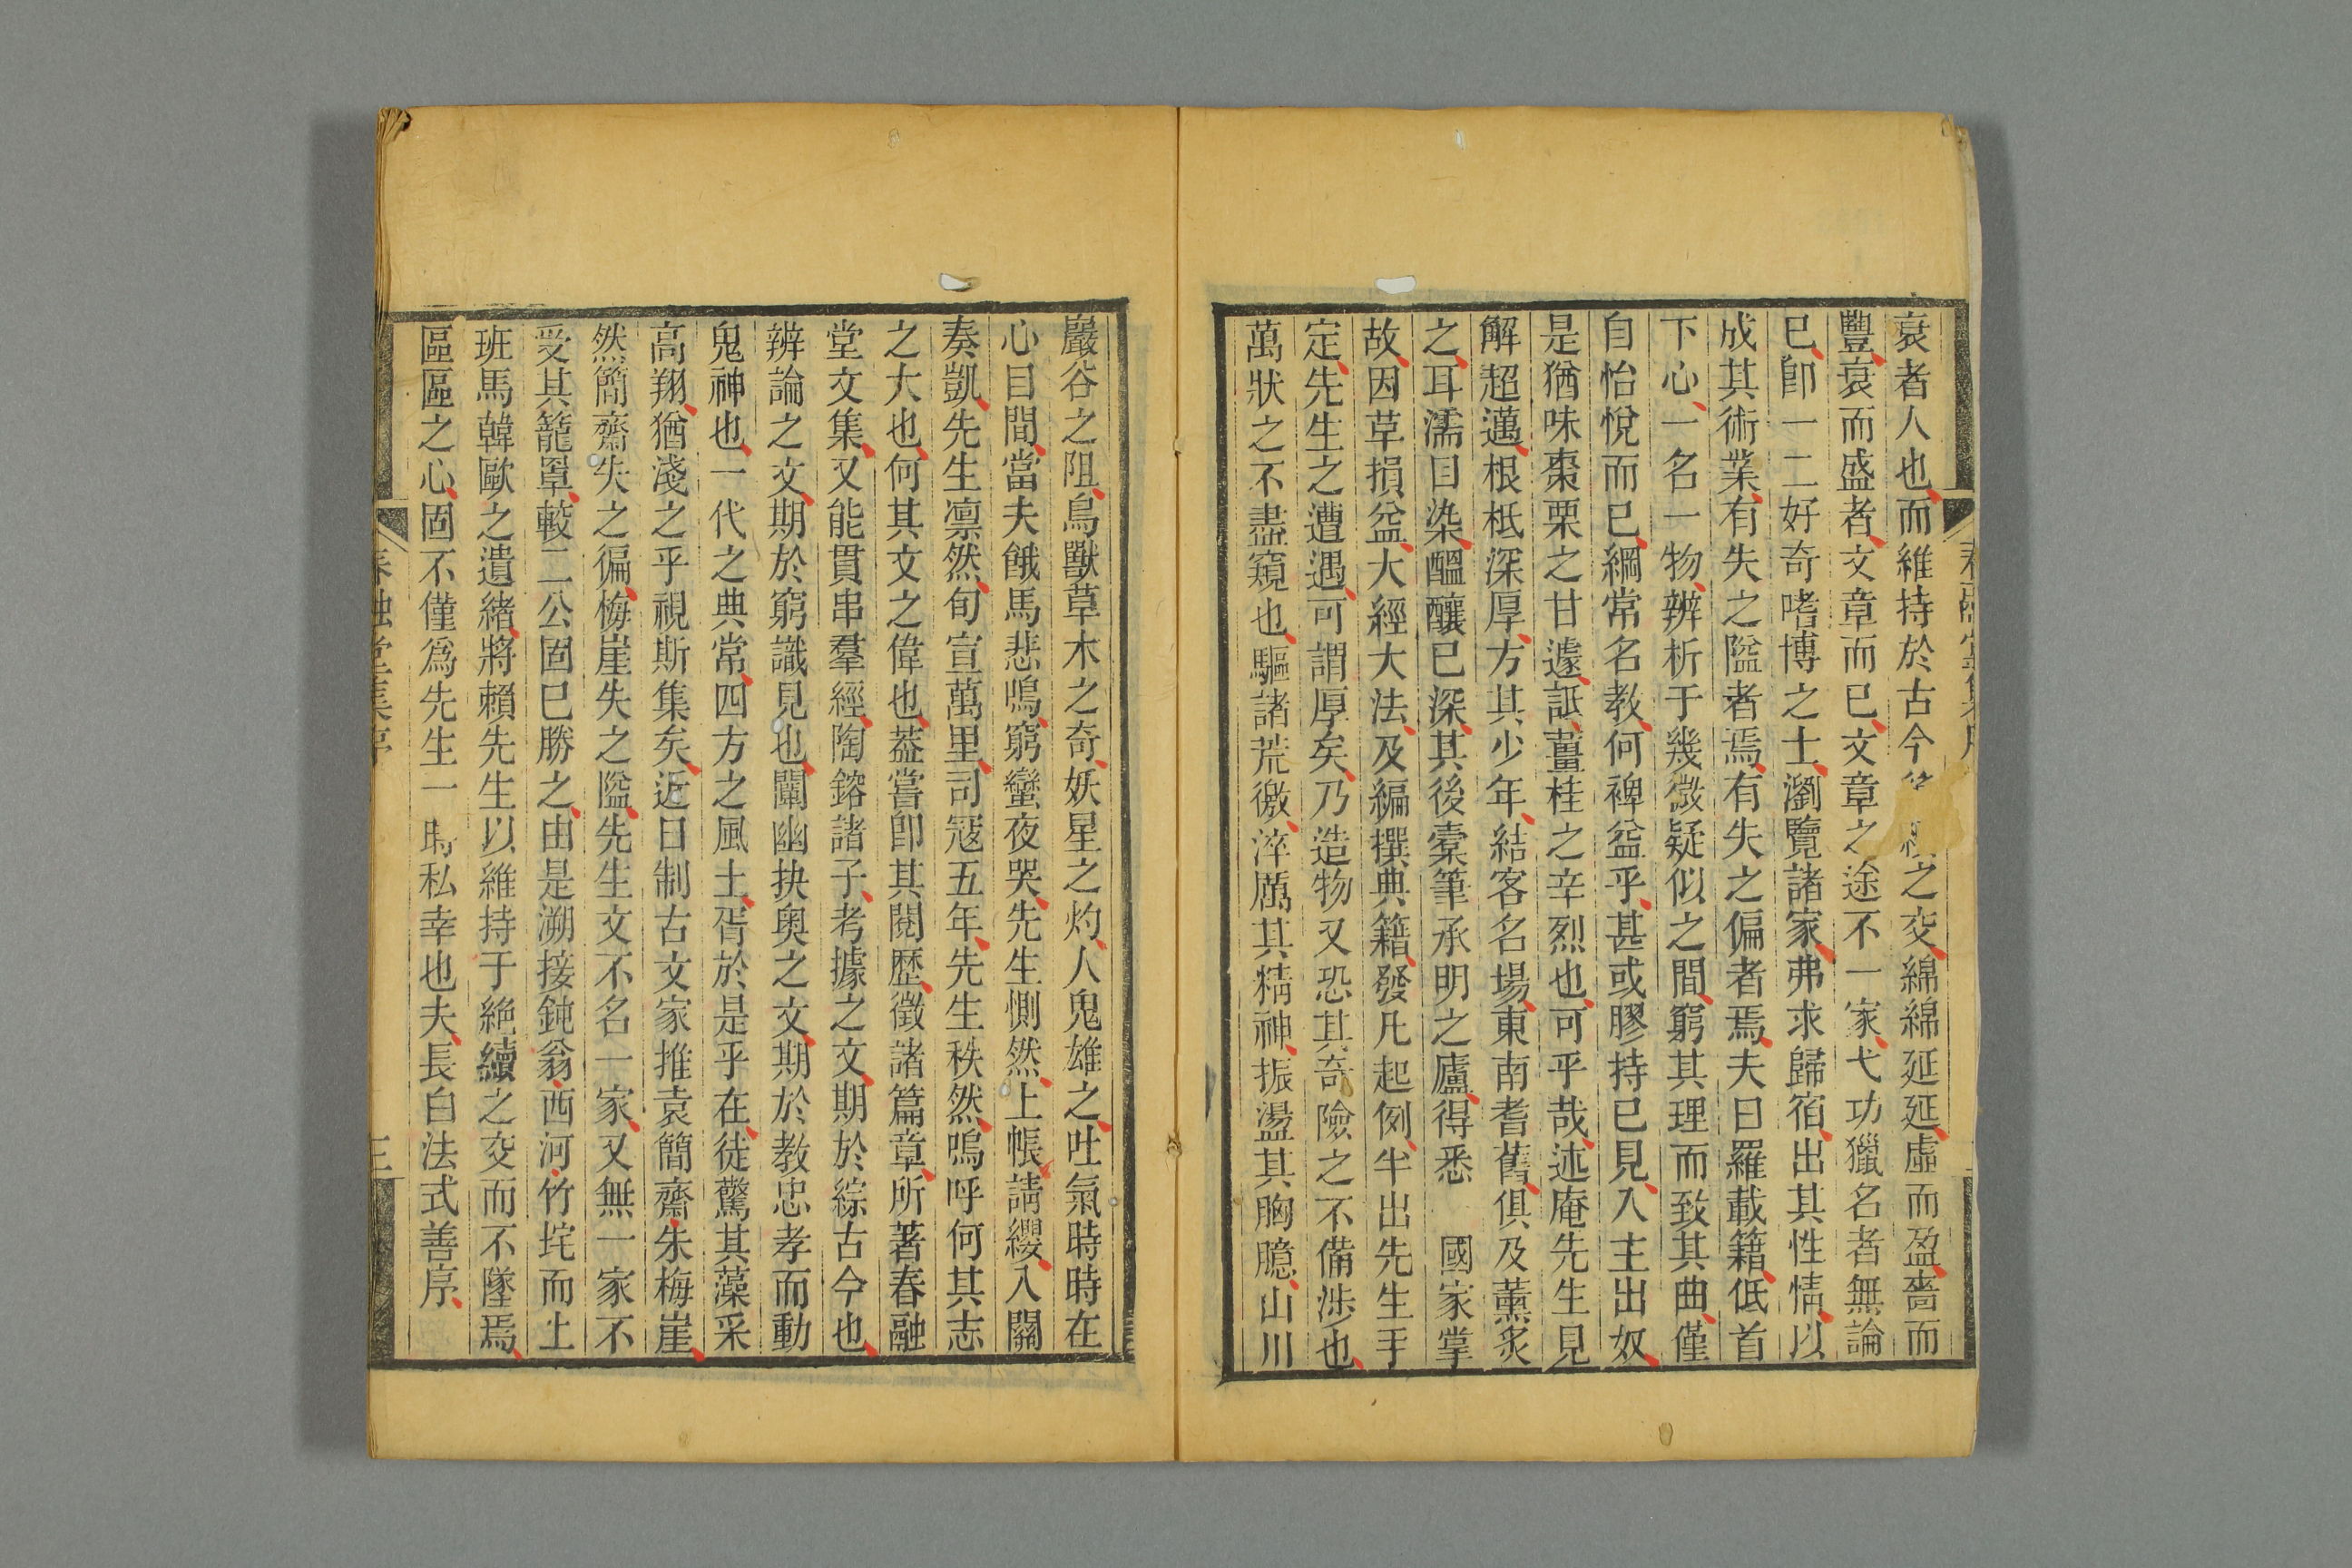 衰者人也而維持於古今
之交綿綿延延虛而盈嗇而
豐衰而盛者文章而已文章之途不一家弋功獵名者無論
已卽一二好奇嗜博之士瀏覽諸家弗求歸宿出其性情以
成其術業有失之隘者焉有失之偏者焉夫日羅載籍低首
下心一名一物辨析于幾微疑似之間窮其理而致其曲僅
自怡悅而已綱常名教何裨益乎甚或膠持已見入主出奴
是猶味棗栗之甘遽詆薑桂之辛烈也可乎哉述庵先生見
解超邁根柢深厚方其少年結客名場東南耆舊俱及薰炙
之耳濡目染醞釀已深其後橐筆承明之廬得悉　國家掌
故因草損益大經大法及編撰典籍發凡起例半出先生手
定先生之遭遇可謂厚矣乃造物又恐其奇險之不備涉也
萬狀之不盡窺也驅諸荒徼淬厲其精神振盪其胸臆山川
巖谷之阻鳥獸草木之奇妖星之灼人鬼雄之吐氣時時在
心目間當夫餓馬悲鳴窮蠻夜哭先生惻然上帳請纓入關
奏凱先生凛然旬宣萬里司寇五年先生秩然嗚呼何其志
之大也何其文之偉也葢嘗卽其閱歷徵諸篇章所著春融
堂文集又能貫串羣經陶鎔諸子考據之文期於綜古今也
辨論之文期於窮識見也闡幽抉奧之文期於教忠孝而動
鬼神也一代之典常四方之風土胥於是乎在徒驚其藻采
高翔猶淺之乎視斯集矣近日制古文家推袁簡齋朱梅崖
然簡齋失之徧梅崖失之隘先生文不名一家又無一家不
受其籠罩較二公固已勝之由是溯接鈍翁西河竹垞而上
班馬韓歐之遺緒將賴先生以維持于絶續之交而不墜焉
區區之心固不僅爲先生一時私幸也夫長白法式善序
春融堂集序
三